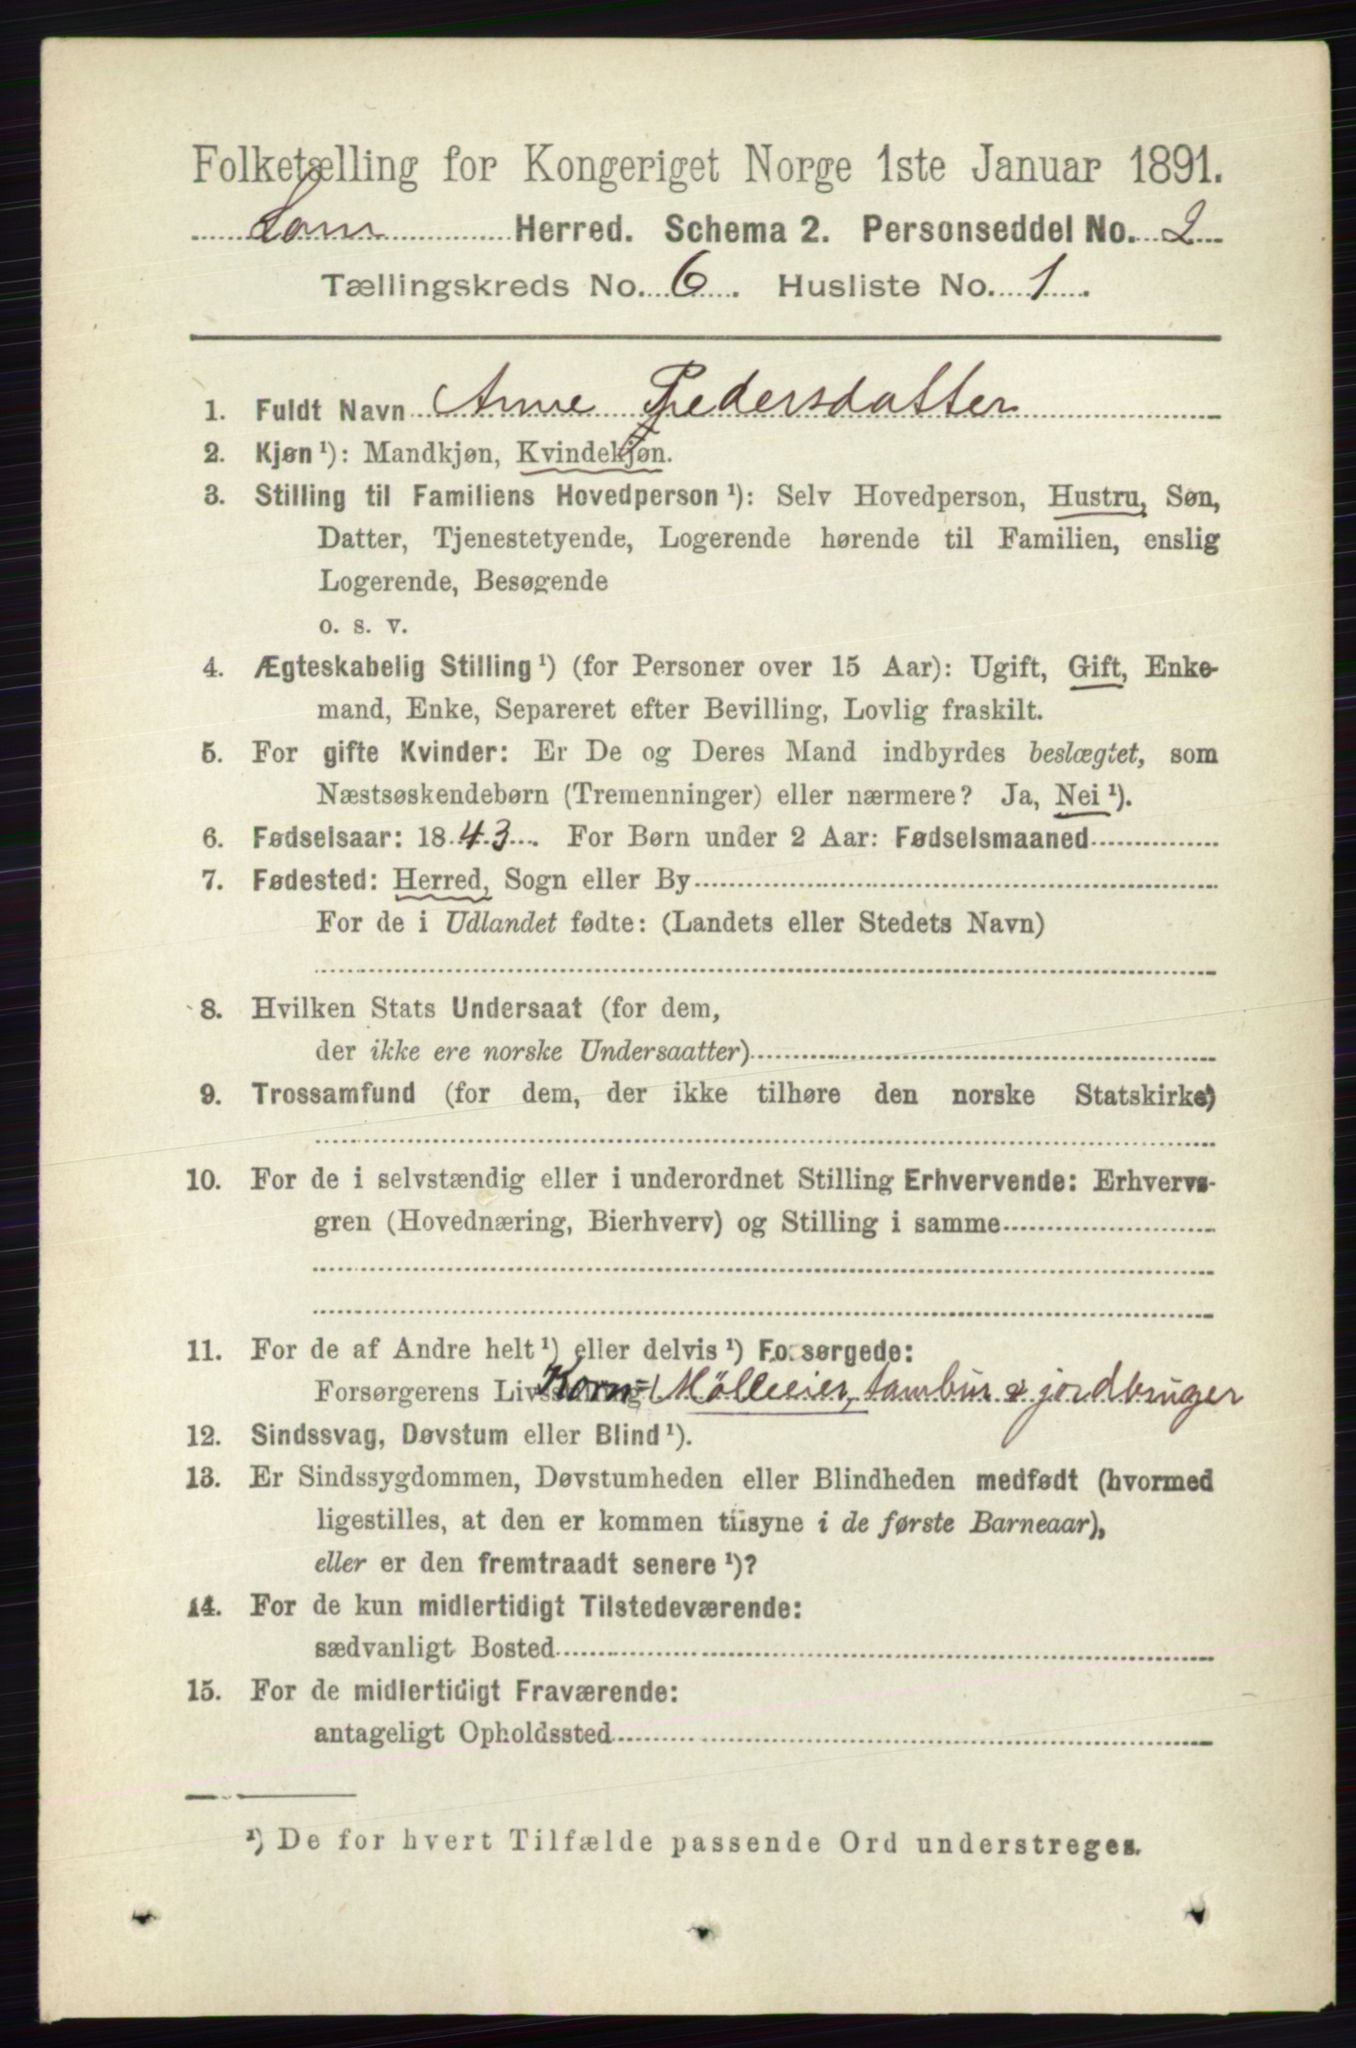 Folketælling for Kongeriget Norge 1ste Januar 1891.
Lom Herred. Schema 2. Personseddel No. 2
Tællingskreds No. 6. Husliste No. 1.
1. Fuldt Navn Anne Pedersdatter
2. Kjøn¹): Mandkjøn, Kvindekjøn.
3. Stilling til Familiens Hovedperson¹): Selv Hovedperson, Hustru, Søn,
Datter, Tjenestetyende, Logerende hørende til Familien, enslig
Logerende, Besøgende
o. s. v.
4. Ægteskabelig Stilling¹) (for Personer over 15 Aar): Ugift, Gift, Enke-
mand, Enke, Separeret efter Bevilling, Lovlig fraskilt.
5. For gifte Kvinder: Er De og Deres Mand indbyrdes beslægtet, som
Næstsøskendebørn (Tremenninger) eller nærmere? Ja, Nei¹).
6. Fødselsaar: 1843. For Børn under 2 Aar: Fødselsmaaned
7. Fødested: Herred, Sogn eller By
For de i Udlandet fødte: (Landets eller Stedets Navn)
8. Hvilken Stats Undersaat (for dem,
der ikke ere norske Undersaatter)
9. Trossamfund (for dem, der ikke tilhøre den norske Statskirke)
10. For de i selvstændig eller i underordnet Stilling Erhvervende: Erhvervs-
gren (Hovednæring, Bierhverv) og Stilling i samme
11. For de af Andre helt¹) eller delvis¹) Forsørgede:
Forsørgerens Livsstilling Korn= Mølleeier, & jordbruger
12. Sindssvag, Døvstum eller Blind¹).
13. Er Sindssygdommen, Døvstumheden eller Blindheden medfødt (hvormed
ligestilles, at den er kommen tilsyne i de første Barneaar),
eller er den fremtraadt senere¹)?
14. For de kun midlertidigt Tilstedeværende:
sædvanligt Bosted
15. For de midlertidigt Fraværende:
antageligt Opholdssted
¹) De for hvert Tilfælde passende Ord understreges.